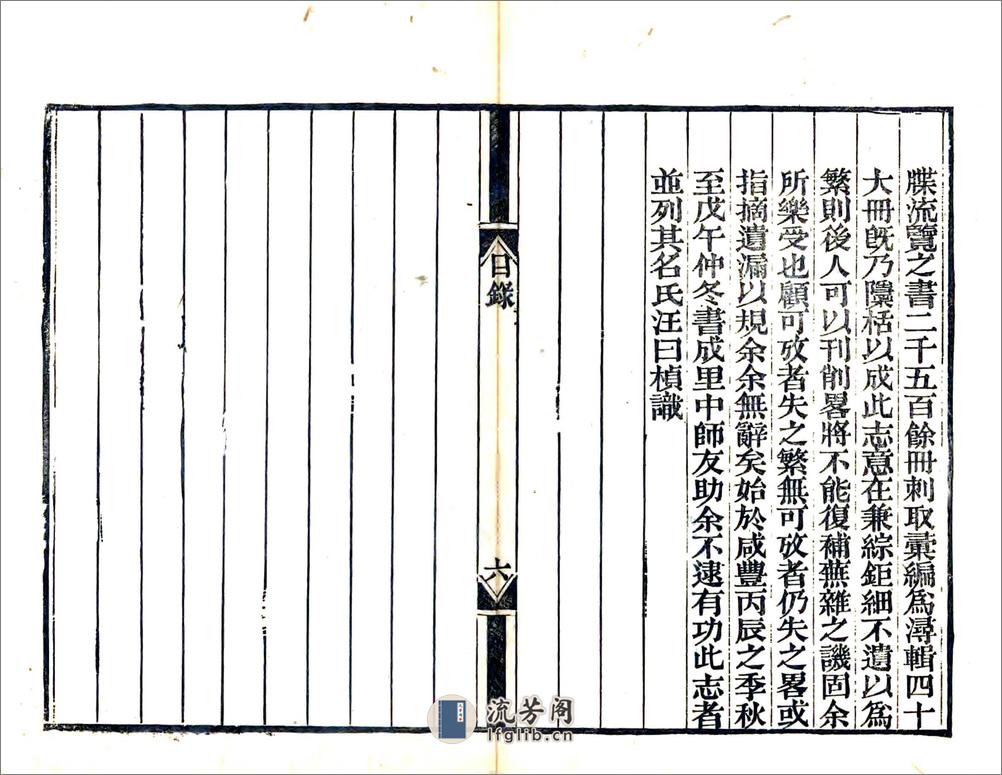 牒流覽之書二千五百餘冊刺取彙編爲潯輯四十
大冊旣乃隱栝以成此志意在兼綜鉅細不遺以爲
繁則後人可以刊削畧將不能復補蕪雜之譏固余
所樂受也顧可攷者失之繁無可攷者仍失之畧或
指摘遺漏以規余余無辭矣始於咸豐丙辰之季秋
至戊午仲冬書成里中師友助余不逮有功此志者
並列其名氏汪曰楨識
目錄
六
流芳阁
lfglib.cn